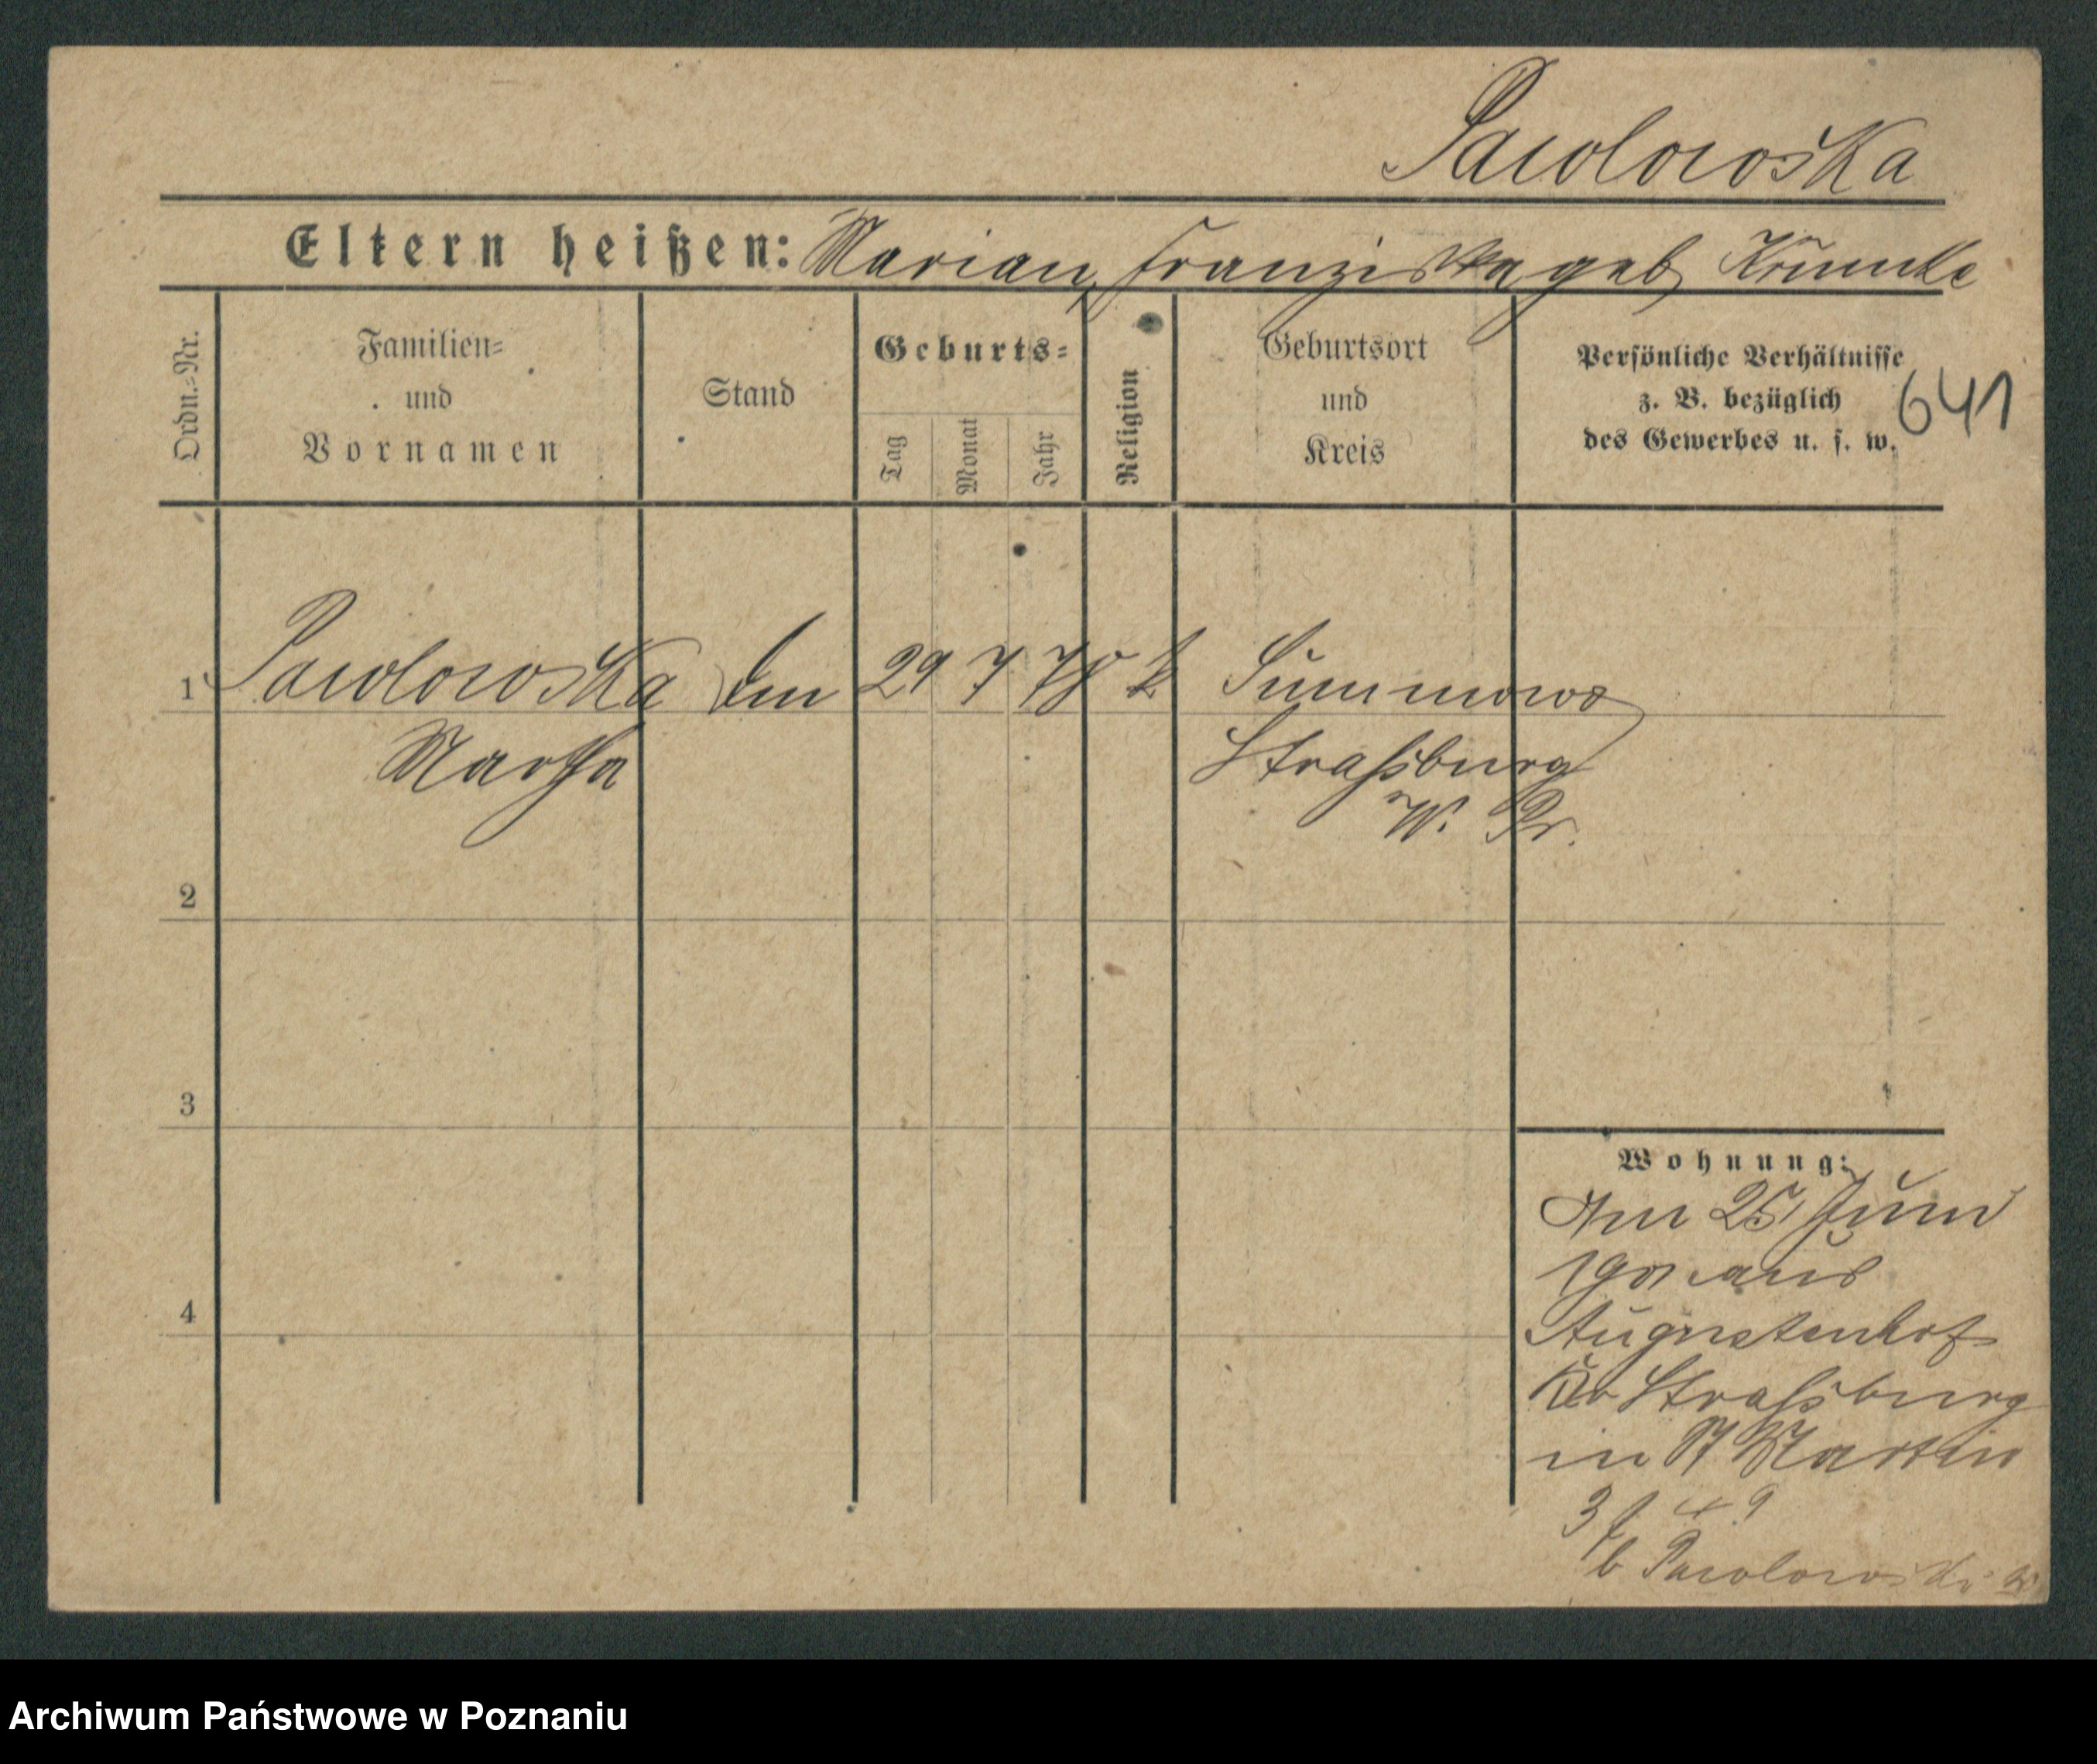 Pawlowska
Eltern heißen: Marian, Franziska geb
Ordn.-Nr.
Familien-
und
Vornamen
Stand
Geburts-
Tag
Monat
Jahr
Religion
Geburtsort
und
Kreis
Persönliche Verhältnisse
z. B. bezüglich
des Gewerbes u. s. w.
641
1 Pawlowska 29 7 78 k Summowo
Martha Straßburg
W. Pr.
2
3
4
Wohnung:
Am 25 Juni
aus
Augustenhof
Kr Straßburg
in St Martin
3
b Pawlowski
Archiwum Państwowe w Poznaniu